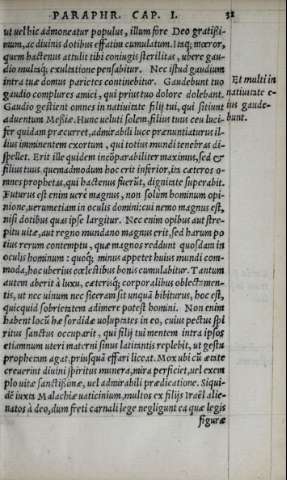 PARAPHR. CAP. I. 32
ut uel hic admoneatur populus, illum fore Deo gratissi-
mum, ac diuinis dotibus affatim cumulatum. Itaq; mœror,
quem hactenus attulit tibi coniugis sterilitas, ubere gau-
dio multaq; exultatione pensabitur. Nec istud gaudium
intra tuæ domus parietes continebitur. Gaudebunt tuo
gaudio complures amici, qui prius tuo dolore dolebant.
Gaudio gestient omnes in natiuitate filij tui, qui sitiunt
aduentum Messiæ. Hunc ueluti solem, filius tuus ceu luci-
fer quidam præcurret, admirabili luce prænuntiaturus il-
lius imminentem exortum, qui totius mundi tenebras di-
spellet. Erit ille quidem incōparabiliter maximus, sed &
filius tuus, quemadmodum hoc erit inferior, ita cæteros o-
mnes prophetas, qui hactenus fuerūt, dignitate superabit.
Futurus est enim uerè magnus, non solum hominum opi-
nione, uerumetiam in oculis domini: cui nemo magnus est,
nisi dotibus quas ipse largitur. Nec enim opibus aut stre-
pitu uitæ, aut regno mundano magnus erit, sed harum po
tius rerum contemptu, quæ magnos reddunt quosdam in
oculis hominum: quoq; minus appetet huius mundi com-
moda, hoc uberius cœlestibus bonis cumulabitur. Tantum
autem aberit à luxu, cæterisq; corporalibus oblectamen-
tis, ut nec uinum nec siceram sit unquā bibiturus, hoc est,
quicquid sobrietatem adimere potest homini. Non enim
habent locū hæ sordidæ uoluptates in eo, cuius pectus spi
ritus sanctus occuparit, qui filij tui mentem intra ipsos
etiamnum uteri materni sinus latitantis replebit, ut gestu
prophetam agat, priusquā effari liceat. Mox ubi cū ætate
creuerint diuini spiritus munera, mira perficiet, uel exem
plo uitæ sanctissimæ, uel admirabili prædicatione. Siqui-
dē iuxta Malachiæ uaticinium, multos ex filijs Israël alie-
natos à deo, dum freti carnali lege negligunt ea quæ legis
figuræ
Et multi in
natiuitate e-
ius gaude-
bunt.